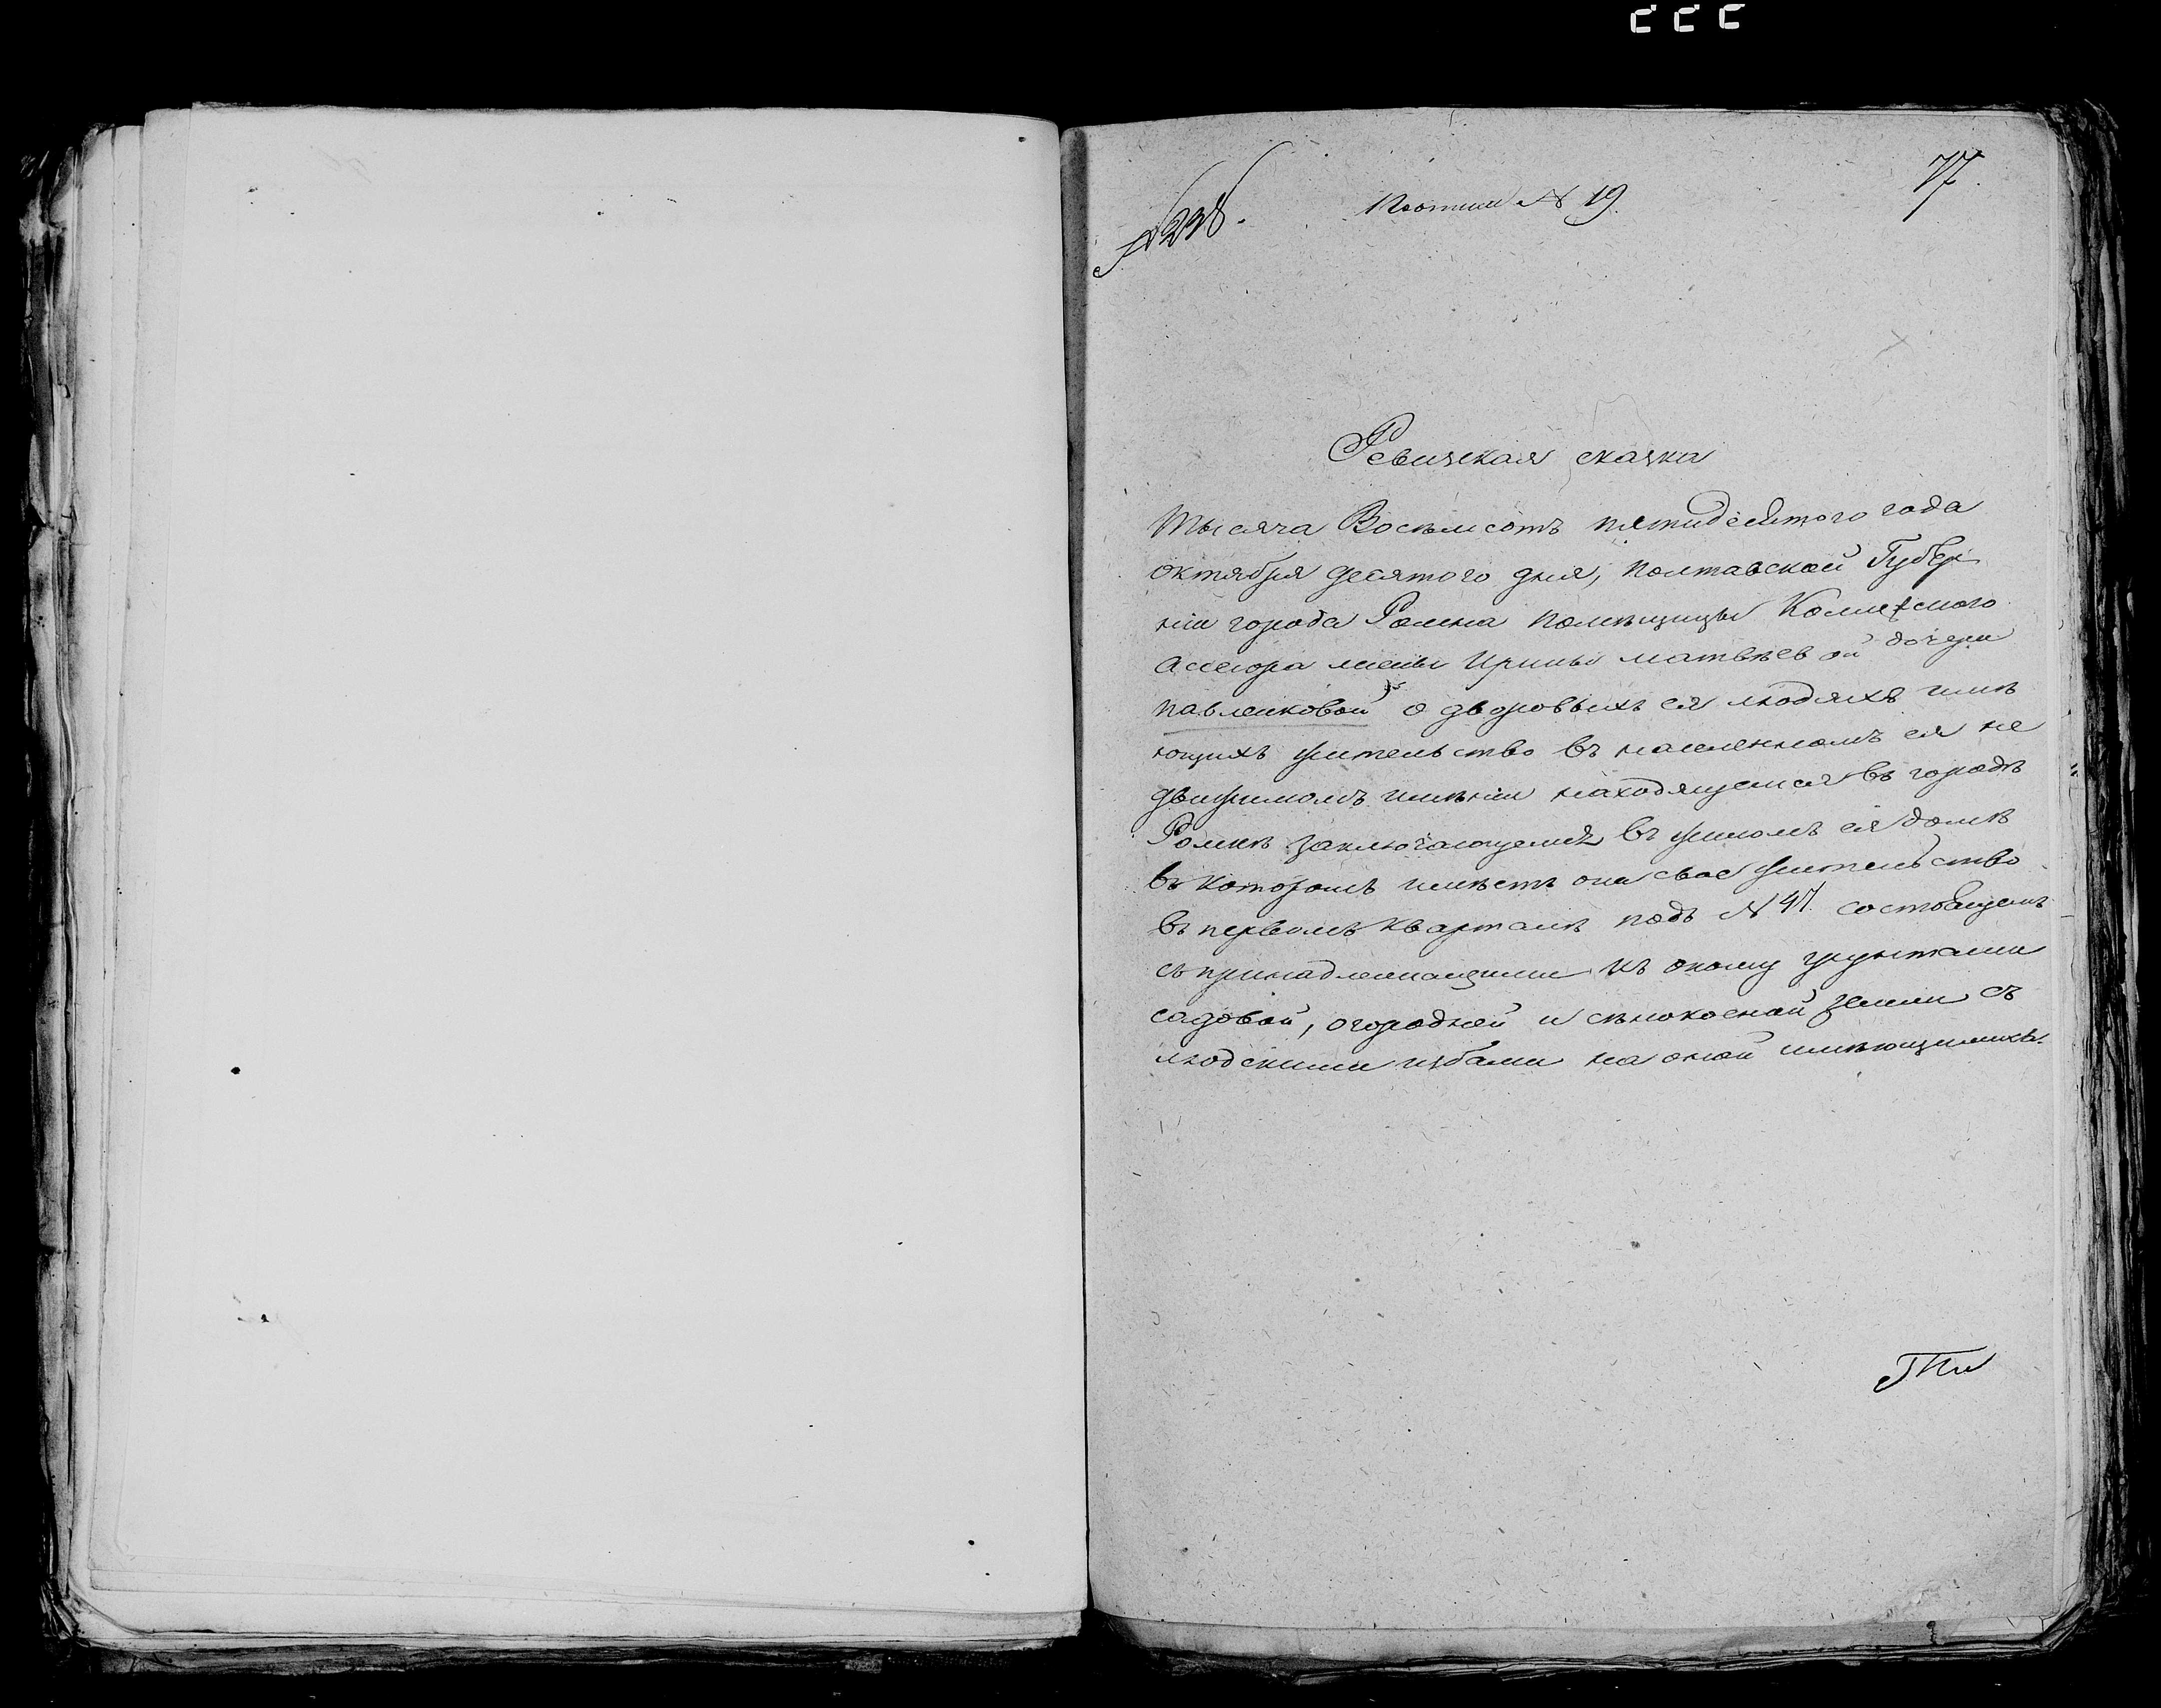 77.
№ 238.
по описи № 19.
Ревизская сказка
Тысяча Восемсотъ пятидесятого года
октября десятого дня, полтавской Губер
ніи города Ромна помещицы Колежского
Ассесора жены Ирины матвѣевой дочери
павленковой о дворовыхъ ея людяхъ имѣ
ющихъ жительство въ населенномъ ея не
движимомъ имѣніи находящемся въ городѣ
Ромнѣ заключающемся въ жиломъ ея домѣ
въ которомъ имѣетъ она свое жительство
въ первомъ кварталѣ подъ № 47. состоящемъ
съ принадлежащими къ оному грунтами
садовой, огородней и сѣнокосной земли съ
людскими избами на оной имѣющимись.